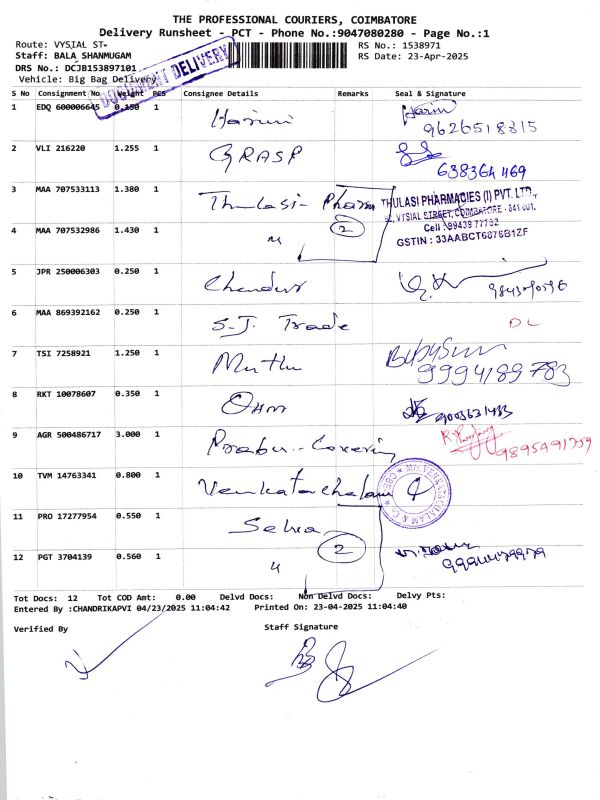 THE PROFESSIONAL COURIERS, COIMBATORE
Delivery Runsheet - PCT - Phone No.:9047080280 - Page No.:1
Route: VYSIAL ST-
Staff: BALA SHANMUGAM
DRS No.: DCJB153897101
Vehicle: Big Bag Delivery
RS No.: 1538971
RS Date: 23-Apr-2025
DOCUMENT DELIVERY
S No Consignment No Weight PCS Consignee Details Remarks Seal & Signature
1 EDQ 600006645 0.350 1 Harini Harini
9626518315
2 VLI 216220 1.255 1 GRASP
638364 1169
3 MAA 707533113 1.380 1 Thulasi- Pharm
THULASI PHARMACIES (I) PVT. LTD.,
VYSIAL STREET, COIMBATORE - 641 001.
Cell : 99439 77792
GSTIN : 33AABCT6676B1ZF
4 MAA 707532986 1.430 1 " 2
5 JPR 250006303 0.250 1
6 MAA 869392162 0.250 1 S.J. Trade DL
7 TSI 7258921 1.250 1 Muthu
9994189783
8 RKT 10078607 0.350 1 Ohm
9003631433
9 AGR 500486717 3.000 1 Prabu- Covering
9895491759
10 TVM 14763341 0.800 1 Venkatachalam
11 PRO 17277954 0.550 1 Selva
12 PGT 3704139 0.560 1 " 2
Tot Docs: 12 Tot COD Amt: 0.00 Delvd Docs: Non Delvd Docs: Delvy Pts:
Entered By :CHANDRIKAPVI 04/23/2025 11:04:42 Printed On: 23-04-2025 11:04:40
Verified By
Staff Signature